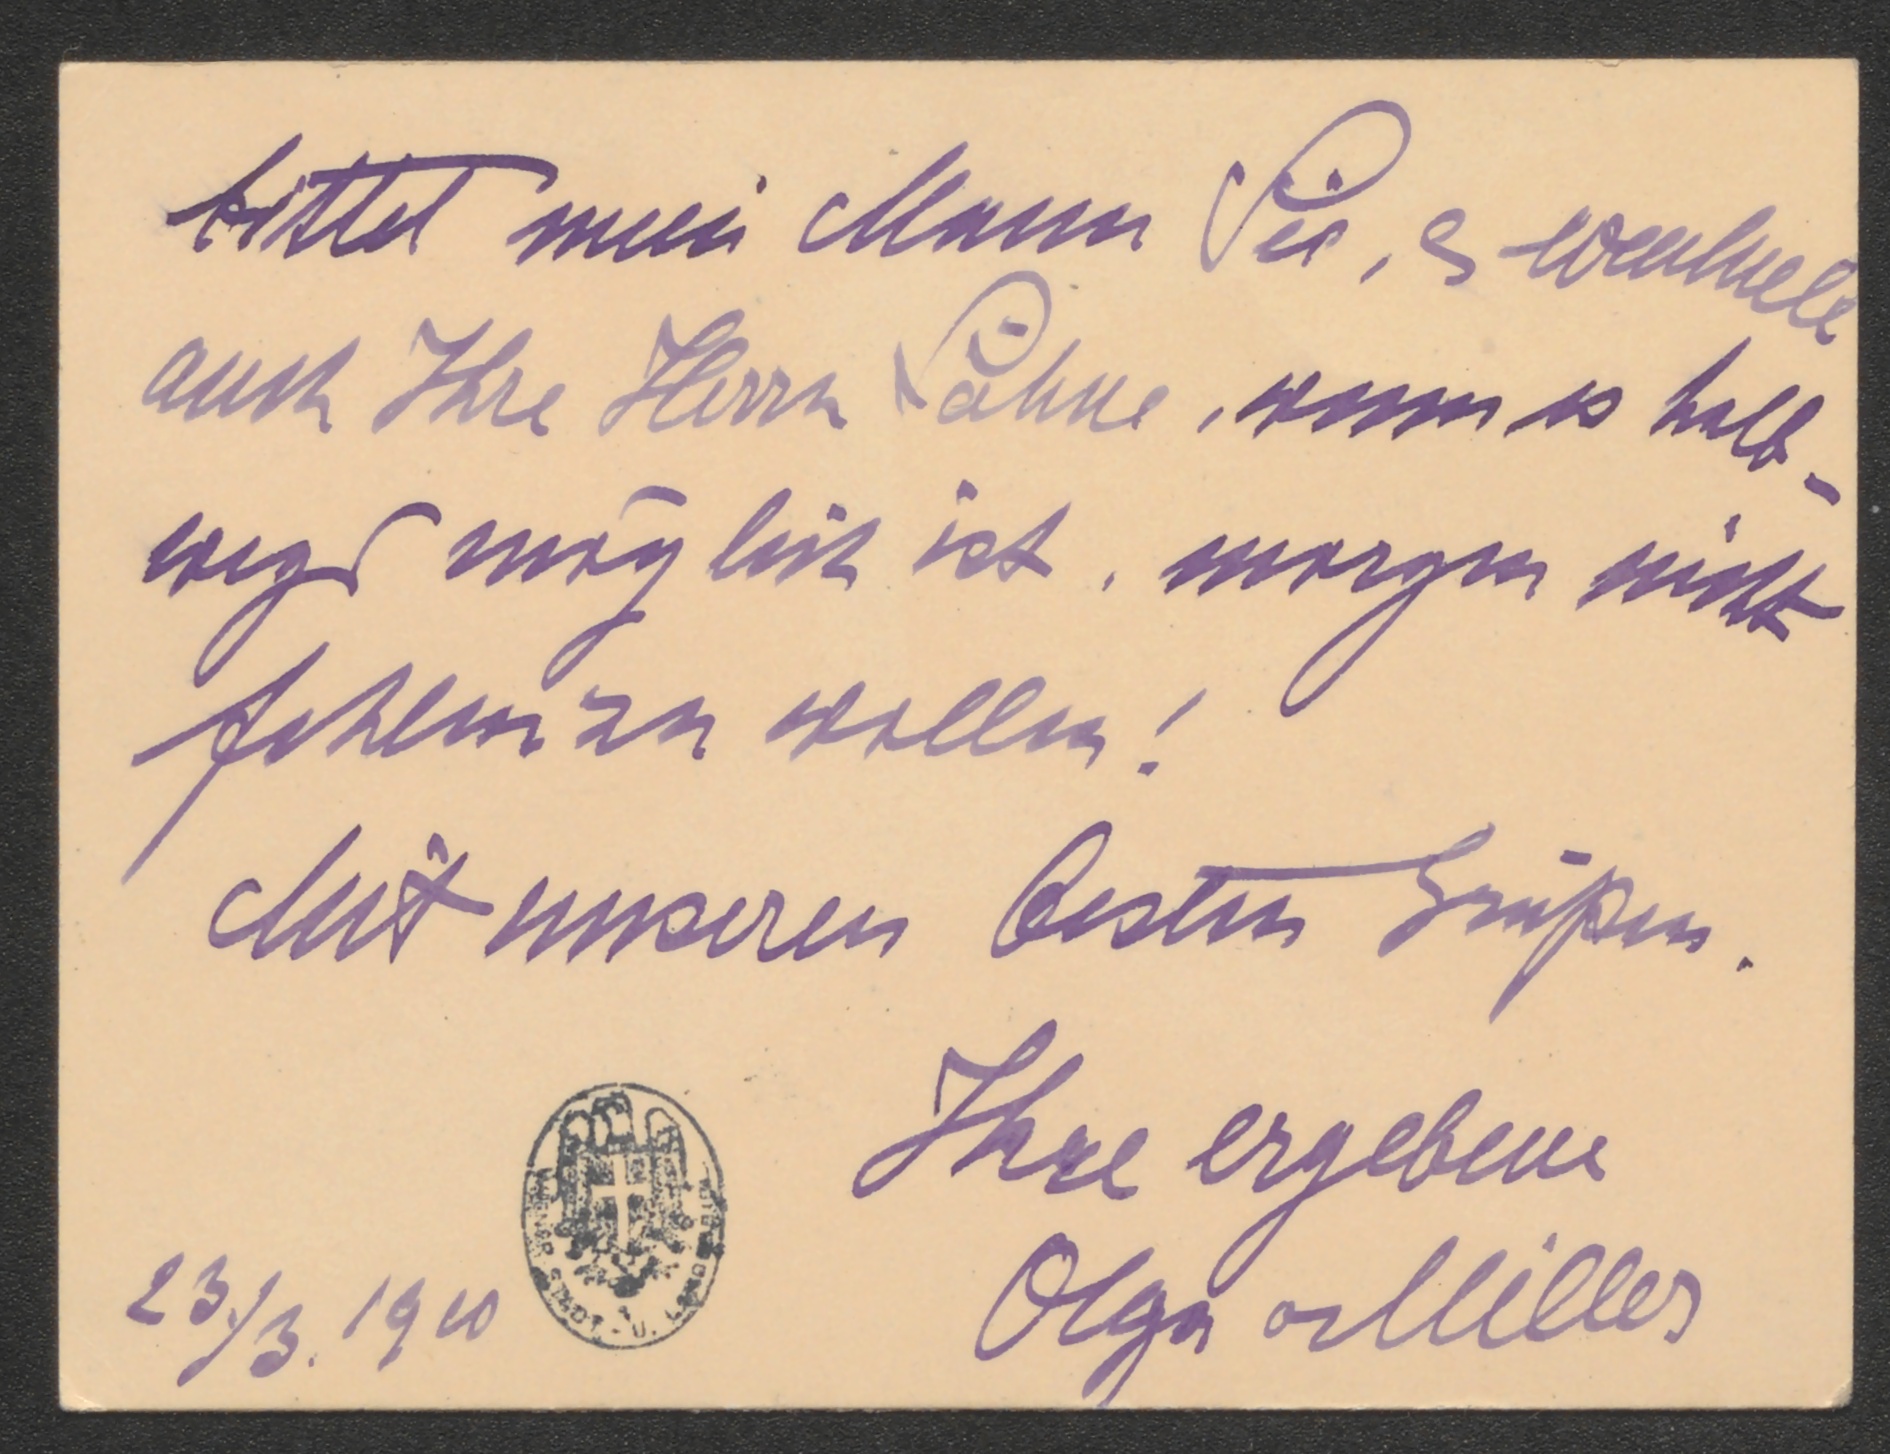 bittet mein Mann Sie, u. eventuell
auch Ihre Herrn Söhne, wenn es halb-
wegs möglich ist, morgen nicht
fehlen zu wollen!
Mit unseren besten Grüßen.
Ihre ergebene
Olga Miller
23/3. 1910
WIENER STADT- U. LANDESBIBLIOTHEK